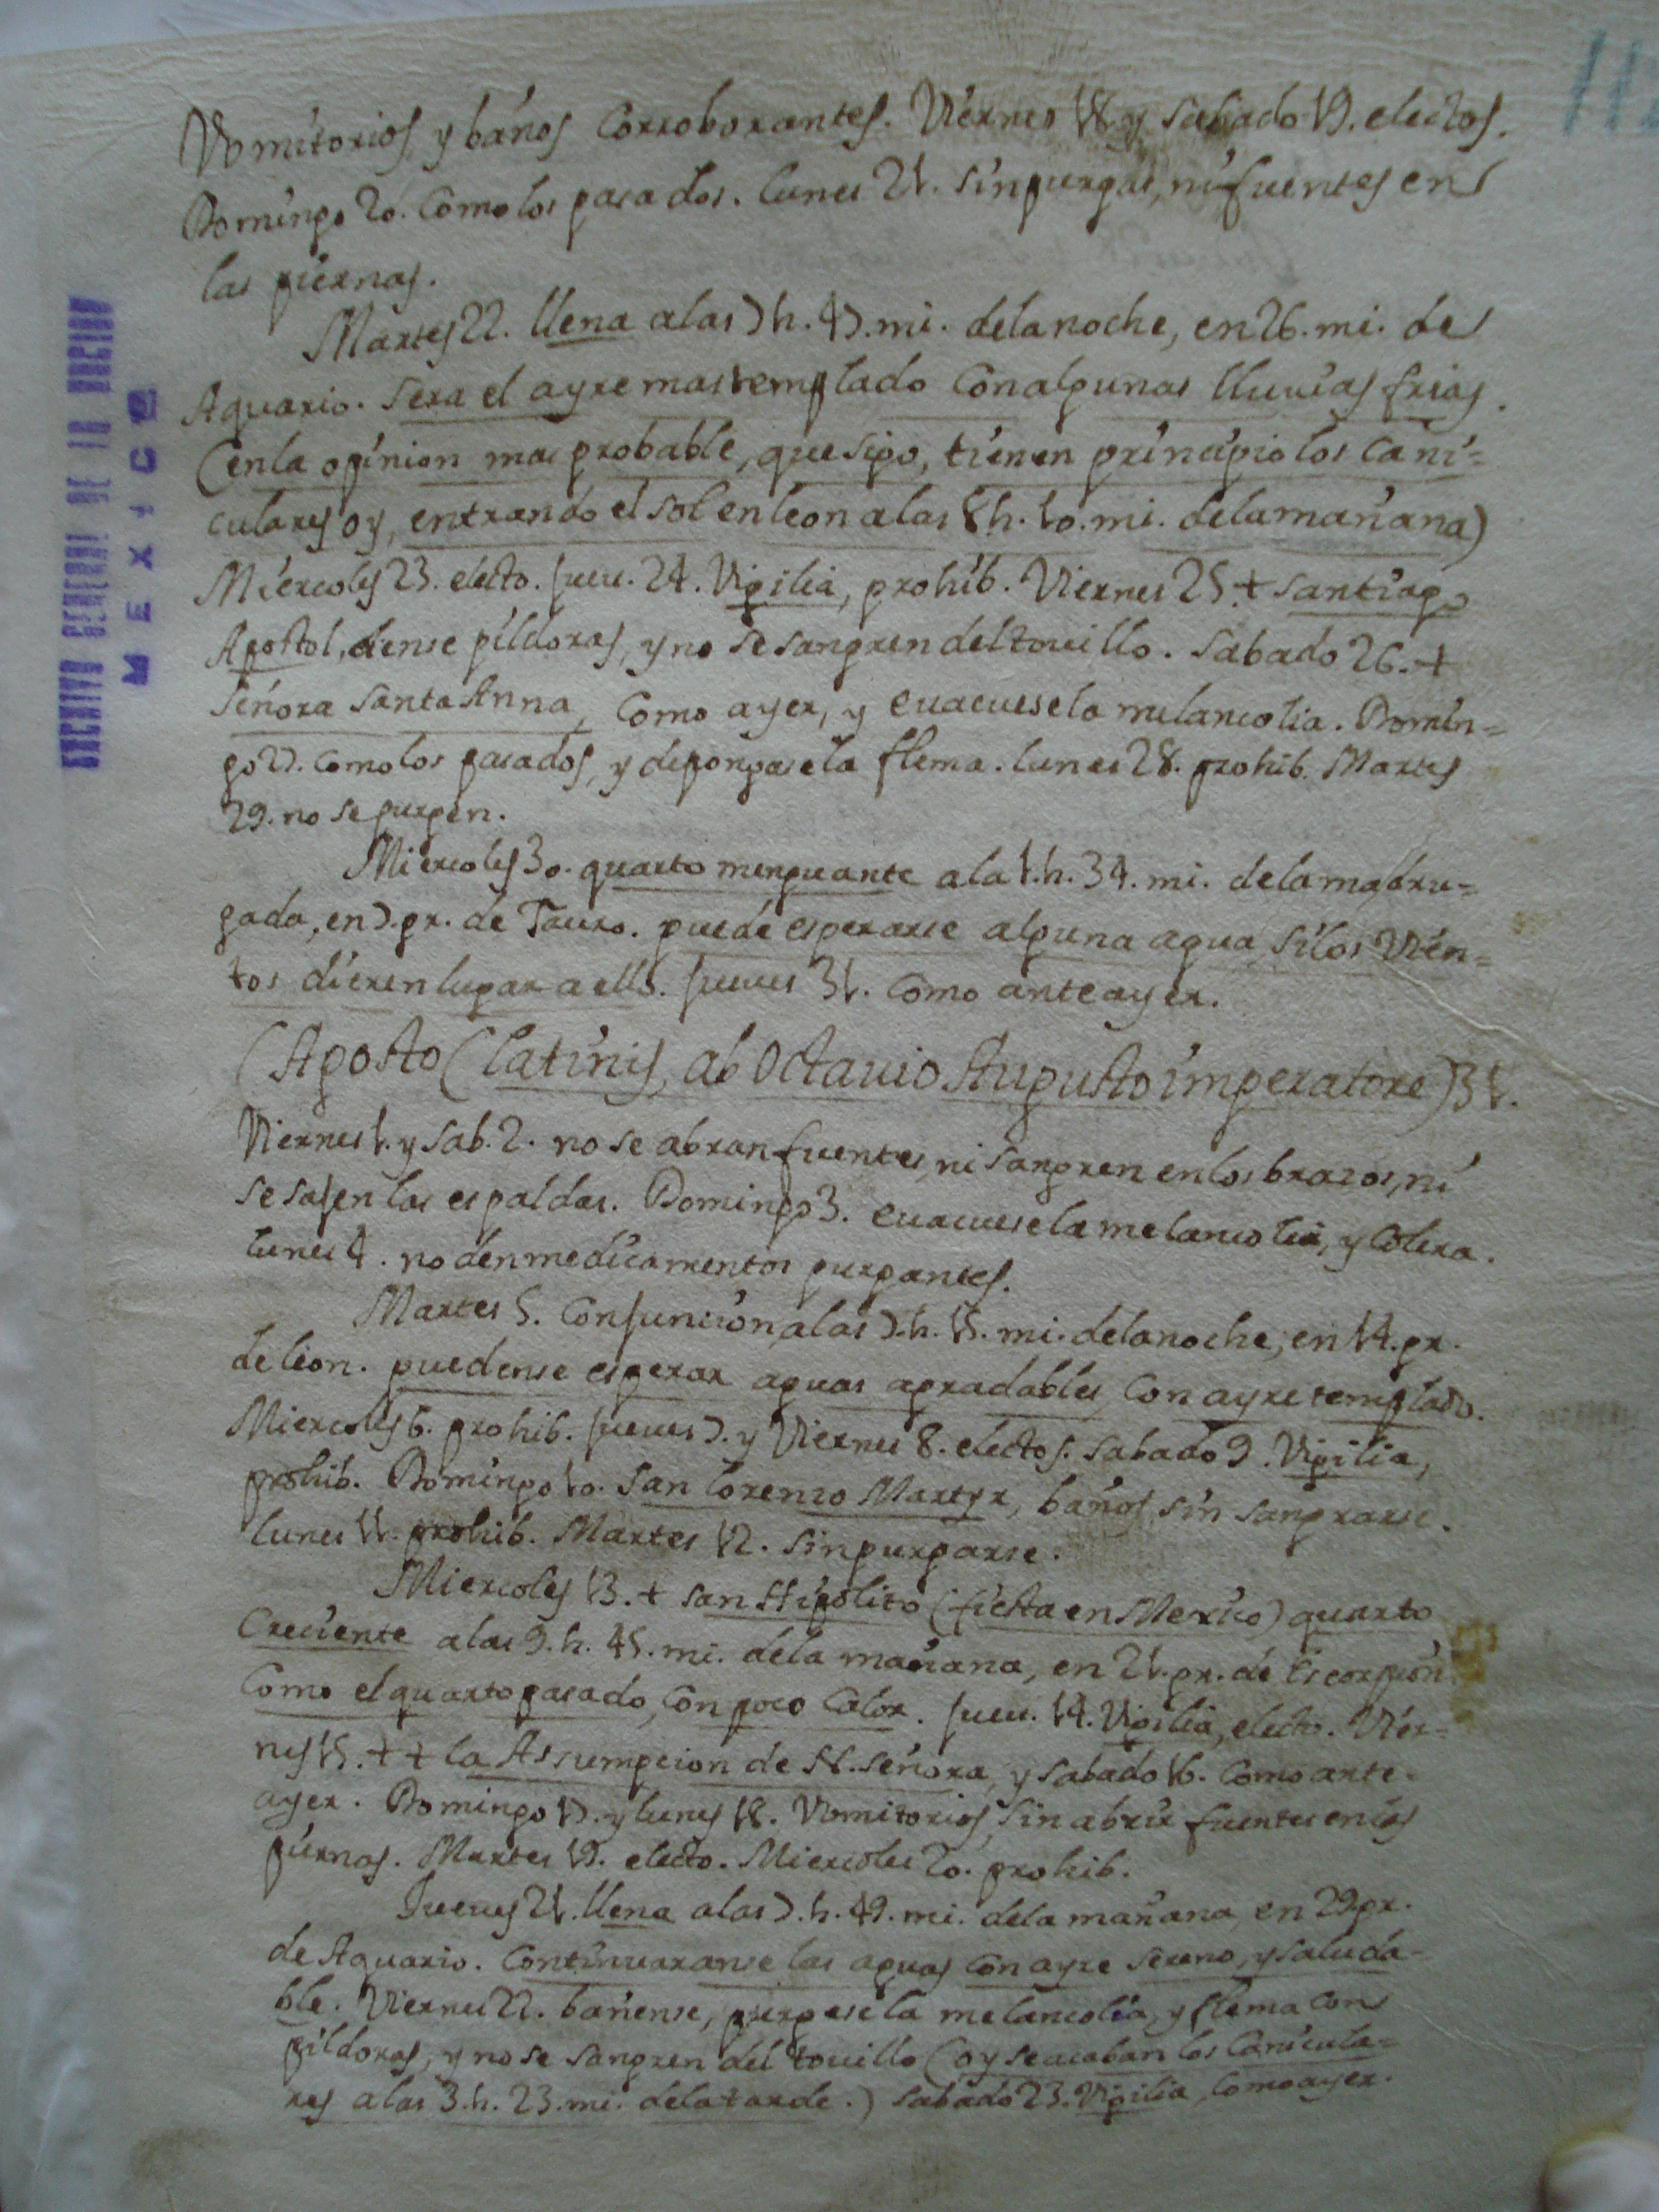 112
Vomitorios, y baños corroborantes. Viernes 18. y sabado 19. electos.
Domingo 20. como los pasados. lunes 21. sin purgas, ni fuentes en
las piernas.
Martes 22. llena a las 7 h. 47. mi. de la noche, en 26. mi. de
Aquario. sera el ayre mas templado con algunas lluvias frias.
(en la opinion mas probable, que sigo, tienen principio los cani=
culares oy, entrando el sol en leon a las 8 h. 10. mi. de la mañana)
Miércoles 23. electo. Juev. 24. Vigilia, prohib. Viernes 25. + Santiago
Apostol, dense pildoras, y no se sangren del tovillo. Sabado 26. +
Señora Santa Anna, como ayer, y evacuese la melancolia. Domin=
go 27. como los pasados, y depongase la flema. lunes 28. prohib. Martes
29. no se purgen.
Miercoles 30. quarto menguante a la 1. h. 34. mi. de la madru=
gada, en 7. gr. de Tauro. puede esperarse alguna agua, si los vien=
tos dieren lugar a ello. Jueves 31. como anteayer.
(Agosto (latinis, ab Octavio Augusto imperatore) 31.
Viernes 1. y sab. 2. no se abran fuentes, ni sangren en los brazos, ni
se sajen las espaldas. Domingo 3. evacuese la melancolia, y colera.
lunes 4. no den medicamentos purgantes.
Martes 5. Conjuncion, a las 7. h. 15. mi. de la noche, en 14. gr.
de leon. puedense esperar aguas agradables, con ayre templado.
Miercoles 6. prohib. Jueves 7. y Viernes 8. electos. sabado 9. Vigilia,
prohib. Domingo 10. San Lorenzo Martyr, baños, sin sangrarse.
lunes 11. prohib. Martes 12. sin purgarse.
Miercoles 13. + San Hipolito (fiesta en Mexico) quarto
Creciente a las 9. h. 45. mi. de la mañana, en 21. gr. de Escorpion
Como el quarto pasado, con poco calor. Juev. 14. Vigilia, electo. Vier=
nes 15. + + la Assumpcion de N. Señora, y sabado 16. como ante=
ayer. Domingo 17. y lunes 18. Vomitorios, sin abrir fuentes en las
piernas. Martes 19. electo. Miercoles 20. prohib.
Jueves 21. llena a las 7. h. 49. mi. de la mañana, en 29. gr.
de Aquario. Continuaranse las aguas con ayre sereno, y saluda=
ble. Viernes 22. bañense, purguese la melancolia, y flema con
pildoras, y no se sangren del tovillo (oy se acaban los Canicula=
res a las 3. h. 23. mi. de la tarde.) sabado 23. Vigilia, como ayer.
ARCHIVO GENERAL DE LA NACION
MEXICO